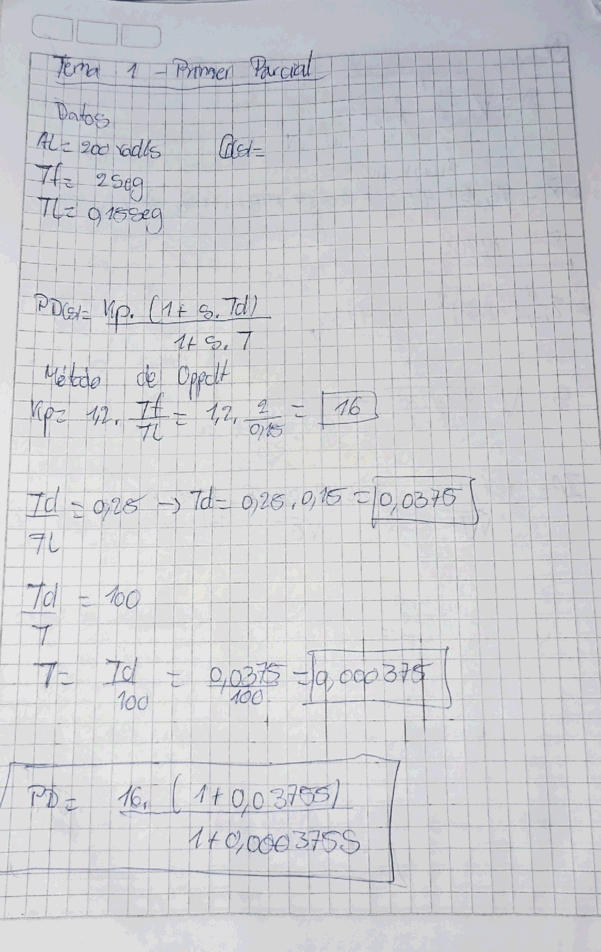 Tema 1 - Primer Parcial
Datos
AL= 200 rad/s
Tf= 2 seg
TL= 0,15 seg
PD(s)= Kp. (1+ s. Td) / 1+ s. T
Método de Oppelt
Kp= 1,2. Tf/TL = 1,2. 2/0,15 = 16
Td/TL = 0,25 → Td= 0,25. 0,15 = 0,0375
Td/T = 100
T= Td/100 = 0,0375/100 = 0,000375
PD= 16. (1+0,0375S) / 1+0,000375S